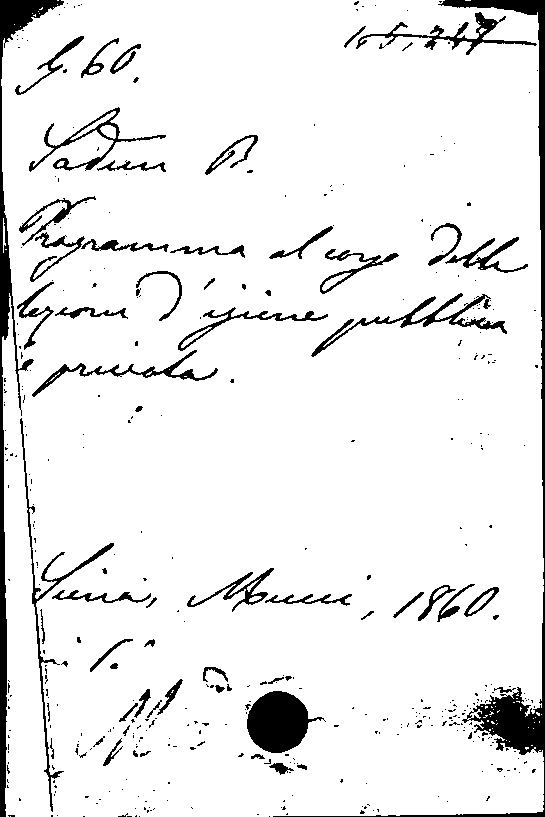 G. 60.
16 5, 247
Sadun B.
Programma al corso delle
lezioni d'igiene pubblica
e privata.
Siena, Mucci, 1860.
in 8.°
M